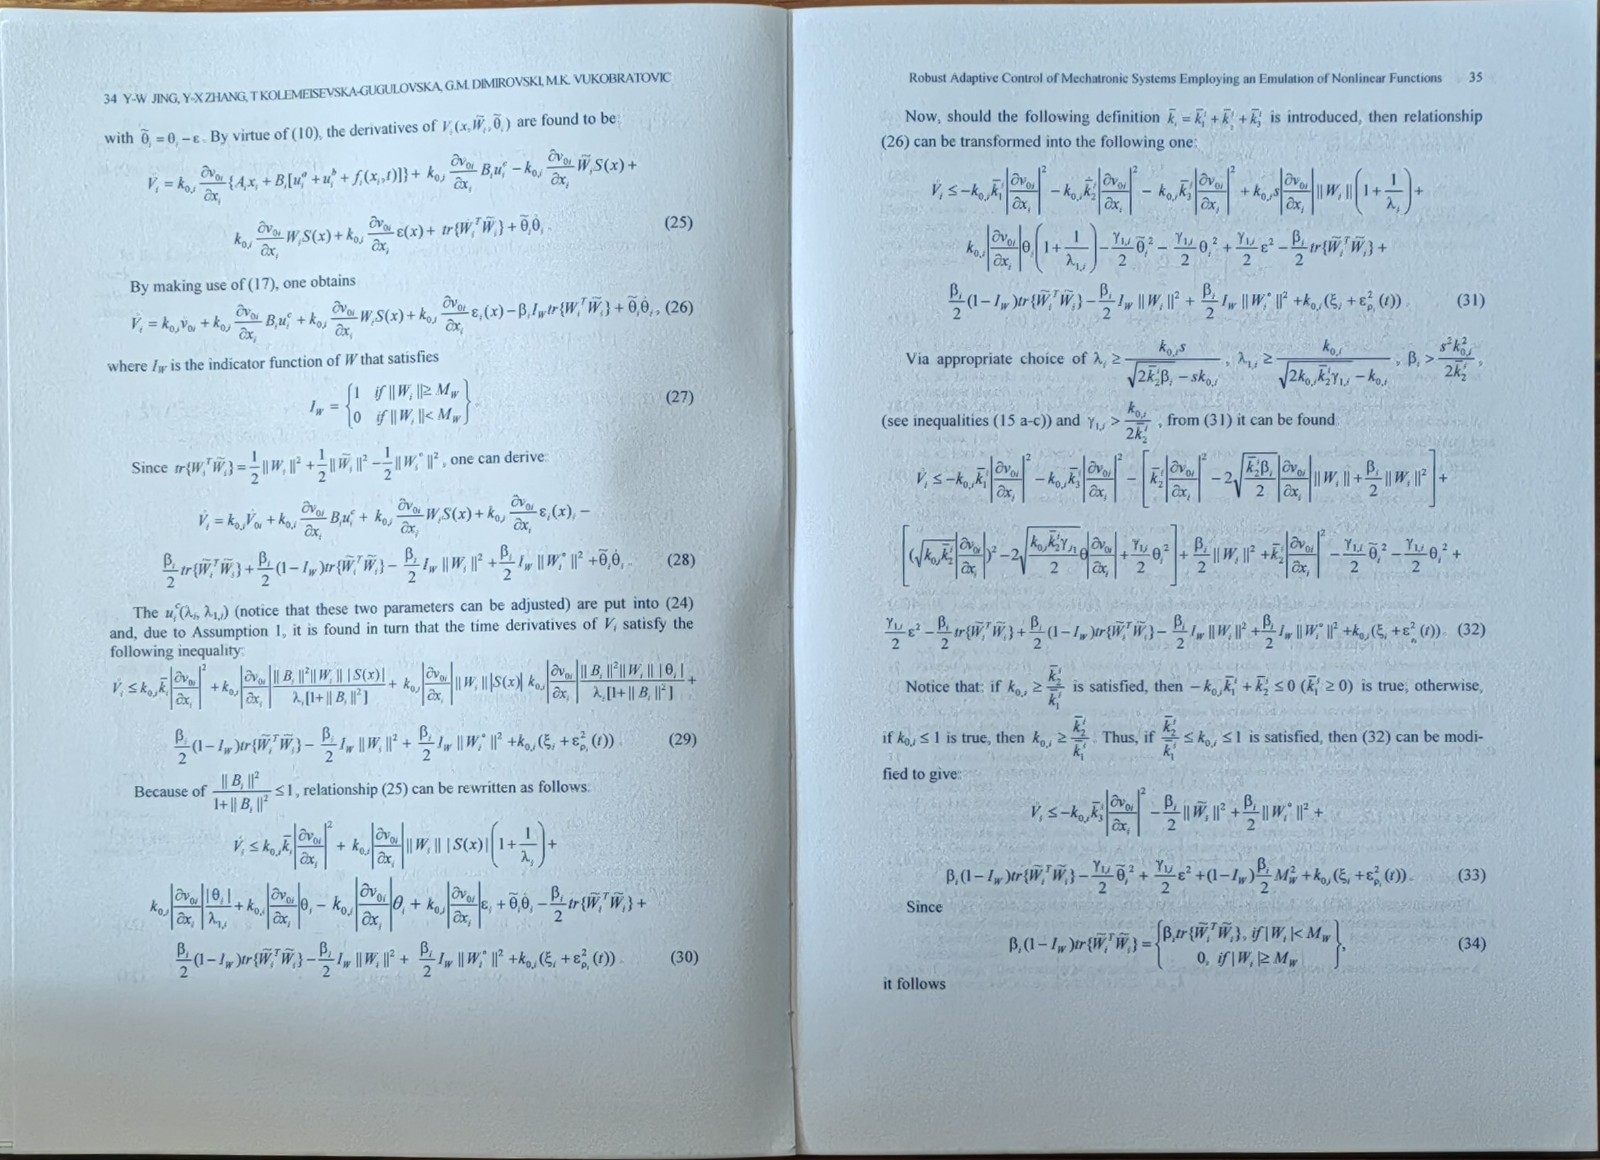 34 Y-W JING, Y-X ZHANG, T KOLEMEISEVSKA-GUGULOVSKA, G.M. DIMIROVSKI, M.K. VUKOBRATOVIC
with θ̃ᵢ = θᵢ − ε. By virtue of (10), the derivatives of Vᵢ(x, W̃ᵢ, θ̃ᵢ) are found to be:
V̇ᵢ = k₀,ᵢ ∂v₀ᵢ/∂xᵢ {Aᵢxᵢ + Bᵢ[uᵢᵃ + uᵢᵇ + fᵢ(xᵢ,t)]} + k₀,ᵢ ∂v₀ᵢ/∂xᵢ Bᵢuᵢᶜ − k₀,ᵢ ∂v₀ᵢ/∂xᵢ W̃ᵢS(x) +
k₀,ᵢ ∂v₀ᵢ/∂xᵢ WᵢS(x) + k₀,ᵢ ∂v₀ᵢ/∂xᵢ ε(x) + tr{ẆᵢᵀW̃ᵢ} + θ̃ᵢθ̇ᵢ . (25)
By making use of (17), one obtains
V̇ᵢ = k₀,ᵢv̇₀ᵢ + k₀,ᵢ ∂v₀ᵢ/∂xᵢ Bᵢuᵢᶜ + k₀,ᵢ ∂v₀ᵢ/∂xᵢ WᵢS(x) + k₀,ᵢ ∂v₀ᵢ/∂xᵢ εᵢ(x) − βᵢI_W tr{WᵢᵀW̃ᵢ} + θ̃ᵢθ̇ᵢ , (26)
where I_W is the indicator function of W that satisfies
I_W = {1 if || Wᵢ || ≥ M_W
0 if || Wᵢ || < M_W} (27)
Since tr{WᵢᵀW̃ᵢ} = 1/2 || Wᵢ ||² + 1/2 || W̃ᵢ ||² − 1/2 || Wᵢ* ||² , one can derive:
V̇ᵢ = k₀,ᵢV̇₀ᵢ + k₀,ᵢ ∂v₀ᵢ/∂xᵢ Bᵢuᵢᶜ + k₀,ᵢ ∂v₀ᵢ/∂xᵢ WᵢS(x) + k₀,ᵢ ∂v₀ᵢ/∂xᵢ εᵢ(x)ᵢ −
βᵢ/2 tr{W̃ᵢᵀW̃ᵢ} + βᵢ/2 (1 − I_W)tr{W̃ᵢᵀW̃ᵢ} − βᵢ/2 I_W || Wᵢ ||² + βᵢ/2 I_W || Wᵢ* ||² + θ̃ᵢθ̇ᵢ . (28)
The uᵢᶜ(λᵢ, λ₁,ᵢ) (notice that these two parameters can be adjusted) are put into (24)
and, due to Assumption 1, it is found in turn that the time derivatives of Vᵢ satisfy the
following inequality:
V̇ᵢ ≤ k₀,ᵢk̄ᵢ |∂v₀ᵢ/∂xᵢ|² + k₀,ᵢ |∂v₀ᵢ/∂xᵢ| || Bᵢ ||² || Wᵢ || | S(x)| / λᵢ[1+ || Bᵢ ||²] + k₀,ᵢ |∂v₀ᵢ/∂xᵢ| || Wᵢ || |S(x)| k₀,ᵢ |∂v₀ᵢ/∂xᵢ| || Bᵢ ||² || Wᵢ || | θᵢ | / λᵢ[1+ || Bᵢ ||²] +
βᵢ/2 (1 − I_W)tr{W̃ᵢᵀW̃ᵢ} − βᵢ/2 I_W || Wᵢ ||² + βᵢ/2 I_W || Wᵢ* ||² + k₀,ᵢ(ξᵢ + ε²ρᵢ(t)) . (29)
Because of || Bᵢ ||² / 1+ || Bᵢ ||² ≤ 1, relationship (25) can be rewritten as follows:
V̇ᵢ ≤ k₀,ᵢk̄ᵢ |∂v₀ᵢ/∂xᵢ|² + k₀,ᵢ |∂v₀ᵢ/∂xᵢ| || Wᵢ || | S(x)| (1 + 1/λᵢ) +
k₀,ᵢ |∂v₀ᵢ/∂xᵢ| | θᵢ | / λ₁,ᵢ + k₀,ᵢ |∂v₀ᵢ/∂xᵢ| θᵢ − k₀,ᵢ |∂v₀ᵢ/∂xᵢ| θᵢ + k₀,ᵢ |∂v₀ᵢ/∂xᵢ| εᵢ + θ̃ᵢθ̇ᵢ − βᵢ/2 tr{W̃ᵢᵀW̃ᵢ} +
βᵢ/2 (1 − I_W)tr{W̃ᵢᵀW̃ᵢ} − βᵢ/2 I_W || Wᵢ ||² + βᵢ/2 I_W || Wᵢ* ||² + k₀,ᵢ(ξᵢ + ε²ρᵢ(t)) . (30)
Robust Adaptive Control of Mechatronic Systems Employing an Emulation of Nonlinear Functions 35
Now, should the following definition k̄ᵢ = k̄₁ⁱ + k̄ⁱ + k̄₃ⁱ is introduced, then relationship
(26) can be transformed into the following one:
V̇ᵢ ≤ −k₀,ᵢk̄₁ⁱ |∂v₀ᵢ/∂xᵢ|² − k₀,ᵢk̄₂ⁱ |∂v₀ᵢ/∂xᵢ|² − k₀,ᵢk̄₃ⁱ |∂v₀ᵢ/∂xᵢ|² + k₀,ᵢs |∂v₀ᵢ/∂xᵢ| || Wᵢ || (1 + 1/λᵢ) +
k₀,ᵢ |∂v₀ᵢ/∂xᵢ| θᵢ (1 + 1/λ₁,ᵢ) − γ₁,ᵢ/2 θ̃ᵢ² − γ₁,ᵢ/2 θᵢ² + γ₁,ᵢ/2 ε² − βᵢ/2 tr{W̃ᵢᵀW̃ᵢ} +
βᵢ/2 (1 − I_W)tr{W̃ᵢᵀW̃ᵢ} − βᵢ/2 I_W || Wᵢ ||² + βᵢ/2 I_W || Wᵢ* ||² + k₀,ᵢ(ξᵢ + ε²ρᵢ(t)) . (31)
Via appropriate choice of λᵢ ≥ k₀,ᵢs / √(2k̄₂ⁱβᵢ) − sk₀,ᵢ , λ₁,ᵢ ≥ k₀,ᵢ / √(2k₀,ᵢk̄₂ⁱγ₁,ᵢ) − k₀,ᵢ , βᵢ > s²k²₀,ᵢ / 2k̄₂ⁱ ,
(see inequalities (15 a-c)) and γ₁,ᵢ > k₀,ᵢ / 2k̄₂ⁱ , from (31) it can be found
V̇ᵢ ≤ −k₀,ᵢk̄₁ⁱ |∂v₀ᵢ/∂xᵢ|² − k₀,ᵢk̄₃ⁱ |∂v₀ᵢ/∂xᵢ|² − [k̄₂ⁱ |∂v₀ᵢ/∂xᵢ|² − 2√(k̄₂ⁱβᵢ/2) |∂v₀ᵢ/∂xᵢ| || Wᵢ || + βᵢ/2 || Wᵢ ||²] +
[(√(k₀,ᵢk̄₂ⁱ) |∂v₀ᵢ/∂xᵢ|)² − 2√(k₀,ᵢk̄₂ⁱγᵢ₁/2) θ |∂v₀ᵢ/∂xᵢ| + γ₁,ᵢ/2 θᵢ²] + βᵢ/2 || Wᵢ ||² + k̄₂ⁱ |∂v₀ᵢ/∂xᵢ|² − γ₁,ᵢ/2 θ̃ᵢ² − γ₁,ᵢ/2 θᵢ² +
γ₁,ᵢ/2 ε² − βᵢ/2 tr{W̃ᵢᵀW̃ᵢ} + βᵢ/2 (1 − I_W)tr{W̃ᵢᵀW̃ᵢ} − βᵢ/2 I_W || Wᵢ ||² + βᵢ/2 I_W || Wᵢ* ||² + k₀,ᵢ(ξᵢ + ε²ρᵢ(t)) . (32)
Notice that: if k₀,ᵢ ≥ k̄₂ⁱ/k̄₁ⁱ is satisfied, then −k₀,ᵢk̄₁ⁱ + k̄₂ⁱ ≤ 0 (k̄₁ⁱ ≥ 0) is true; otherwise,
if k₀,ᵢ ≤ 1 is true, then k₀,ᵢ ≥ k̄₂ⁱ/k̄₁ⁱ . Thus, if k̄₂ⁱ/k̄₁ⁱ ≤ k₀,ᵢ ≤ 1 is satisfied, then (32) can be modi-
fied to give:
V̇ᵢ ≤ −k₀,ᵢk̄₃ⁱ |∂v₀ᵢ/∂xᵢ|² − βᵢ/2 || W̃ᵢ ||² + βᵢ/2 || Wᵢ* ||² +
βᵢ(1 − I_W)tr{W̃ᵢᵀW̃ᵢ} − γ₁,ᵢ/2 θ̃ᵢ² + γ₁,ᵢ/2 ε² + (1 − I_W) βᵢ/2 M²_W + k₀,ᵢ(ξᵢ + ε²ρᵢ(t)) . (33)
Since
βᵢ(1 − I_W)tr{W̃ᵢᵀW̃ᵢ} = {βᵢtr{W̃ᵢᵀW̃ᵢ}, if | Wᵢ |< M_W
0, if | Wᵢ |≥ M_W}, (34)
it follows